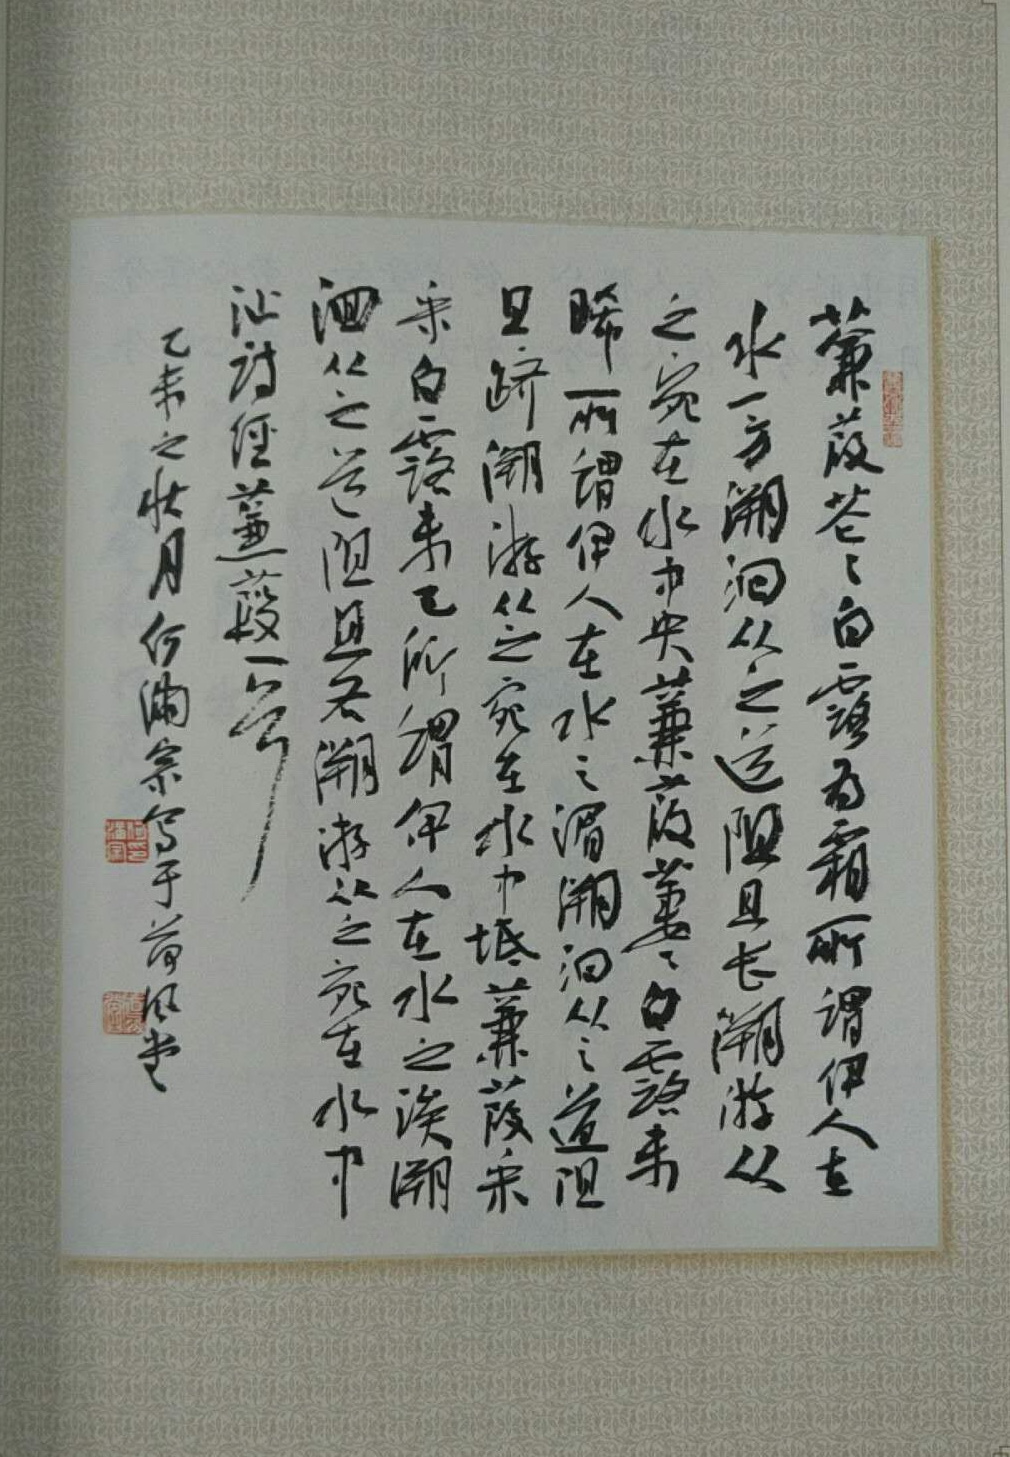 蒹葭苍々白露为霜所谓伊人在
水一方溯洄从之道阻且长溯游从
之宛在水中央蒹葭萋々白露未
晞所谓伊人在水之湄溯洄从之道阻
且跻溯游从之宛在水中坻蒹葭采
采白露未已所谓伊人在水之涘溯
洄从之道阻且右溯游从之宛在水中
沚诗经蒹葭一首
乙未之壮月何满宗写于荷风堂